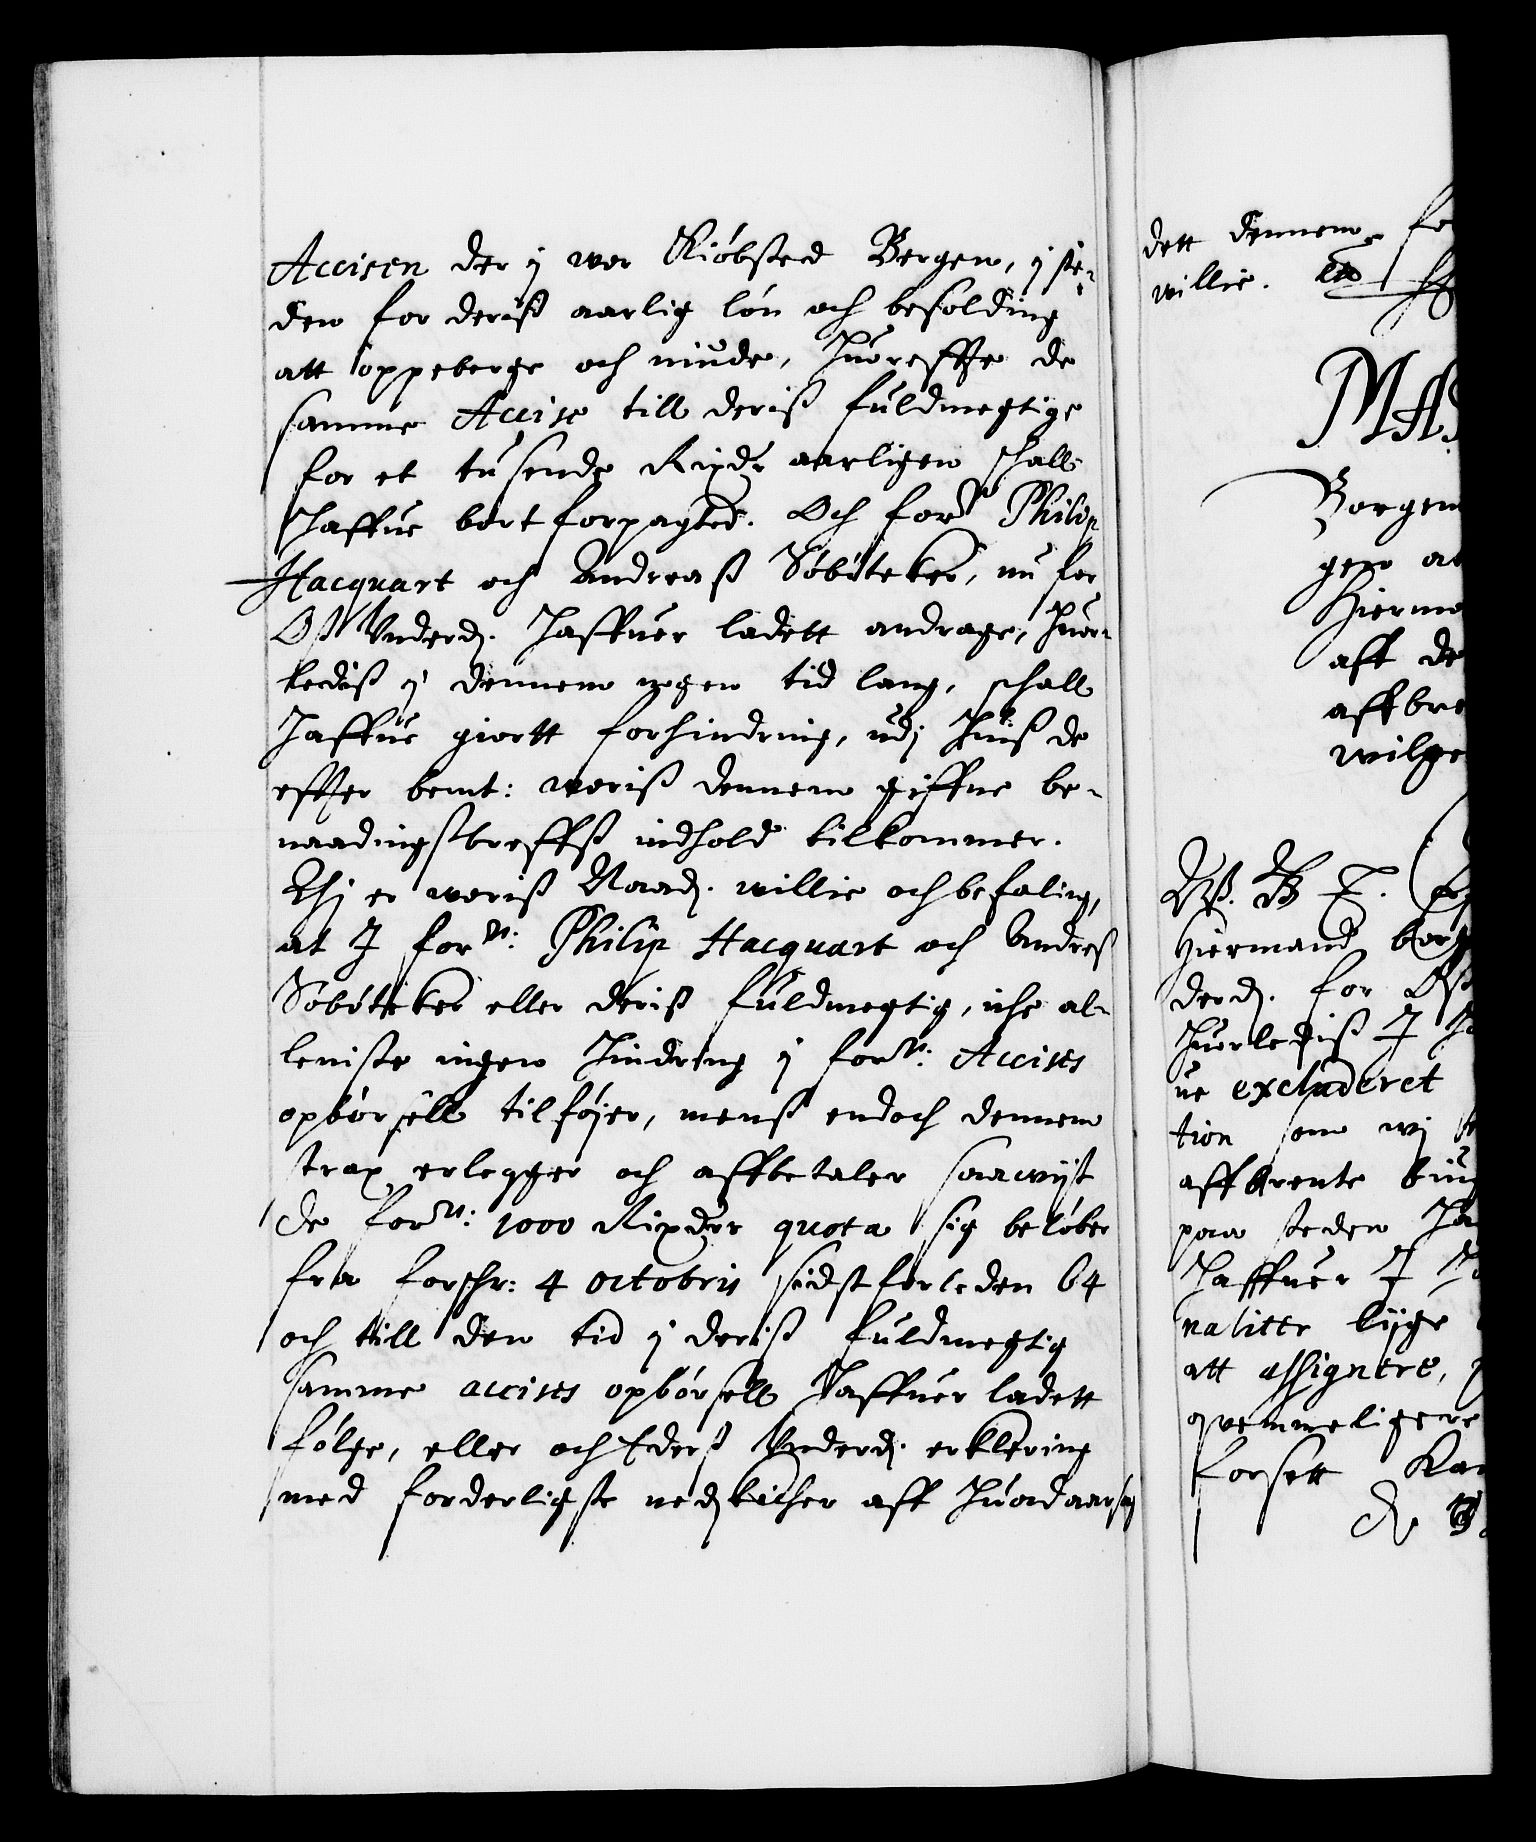 Accisen der j wor Kiøbsted Bergen, j ste-
den for deriß aarlig løn och besolding
att oppeberge och niude, huoreffter de
samme Accise till deriß fuldmegtige
for et tusende Rixdr aarligen schall
haffue bort forpagted. Och forne Philip
Hacquart och Andreaß Søbøtcker, nu for
Oß Underd. haffuer ladett andrage, huor-
lediß j dennem nogen tid lang, schall
haffue giortt forhindring, udj huiß de
effter bemt: woriß dennem giffne be-
naadingsbreffs indhold tilkommer.
Thj er woriß Naad. willie och befaling,
at I forne: Philip Hacquart och Andreß
Søbøtcker eller deriß fuldmegtig, iche al-
leniste ingen hindring j forne: Accises
opbørsell tilføjer, menß endoch dennem
strax erlegger och affbetaler saawijt
de forne: 1000 Rixdlrs quota sig beløber
fra forschr: 4 octobris sidstforleden 64
och till den tid j deriß fuldmegtig
samme accises opbørsell haffuer ladett
følge, eller och Ederß Underd. erklering
med forderligste nedskicher aff huad aarsag
dett dennem
willie. etc
MAS
Borgem
gen at
Hiermed
aff de
affbre
wilge
Hiermand borg
derd. for Oß
huorlediß I
ue excluderet
tion som wj
affbrente
paa steden
haffuer I
nalitet lijge
att assignere,
quemmeligere
forsett